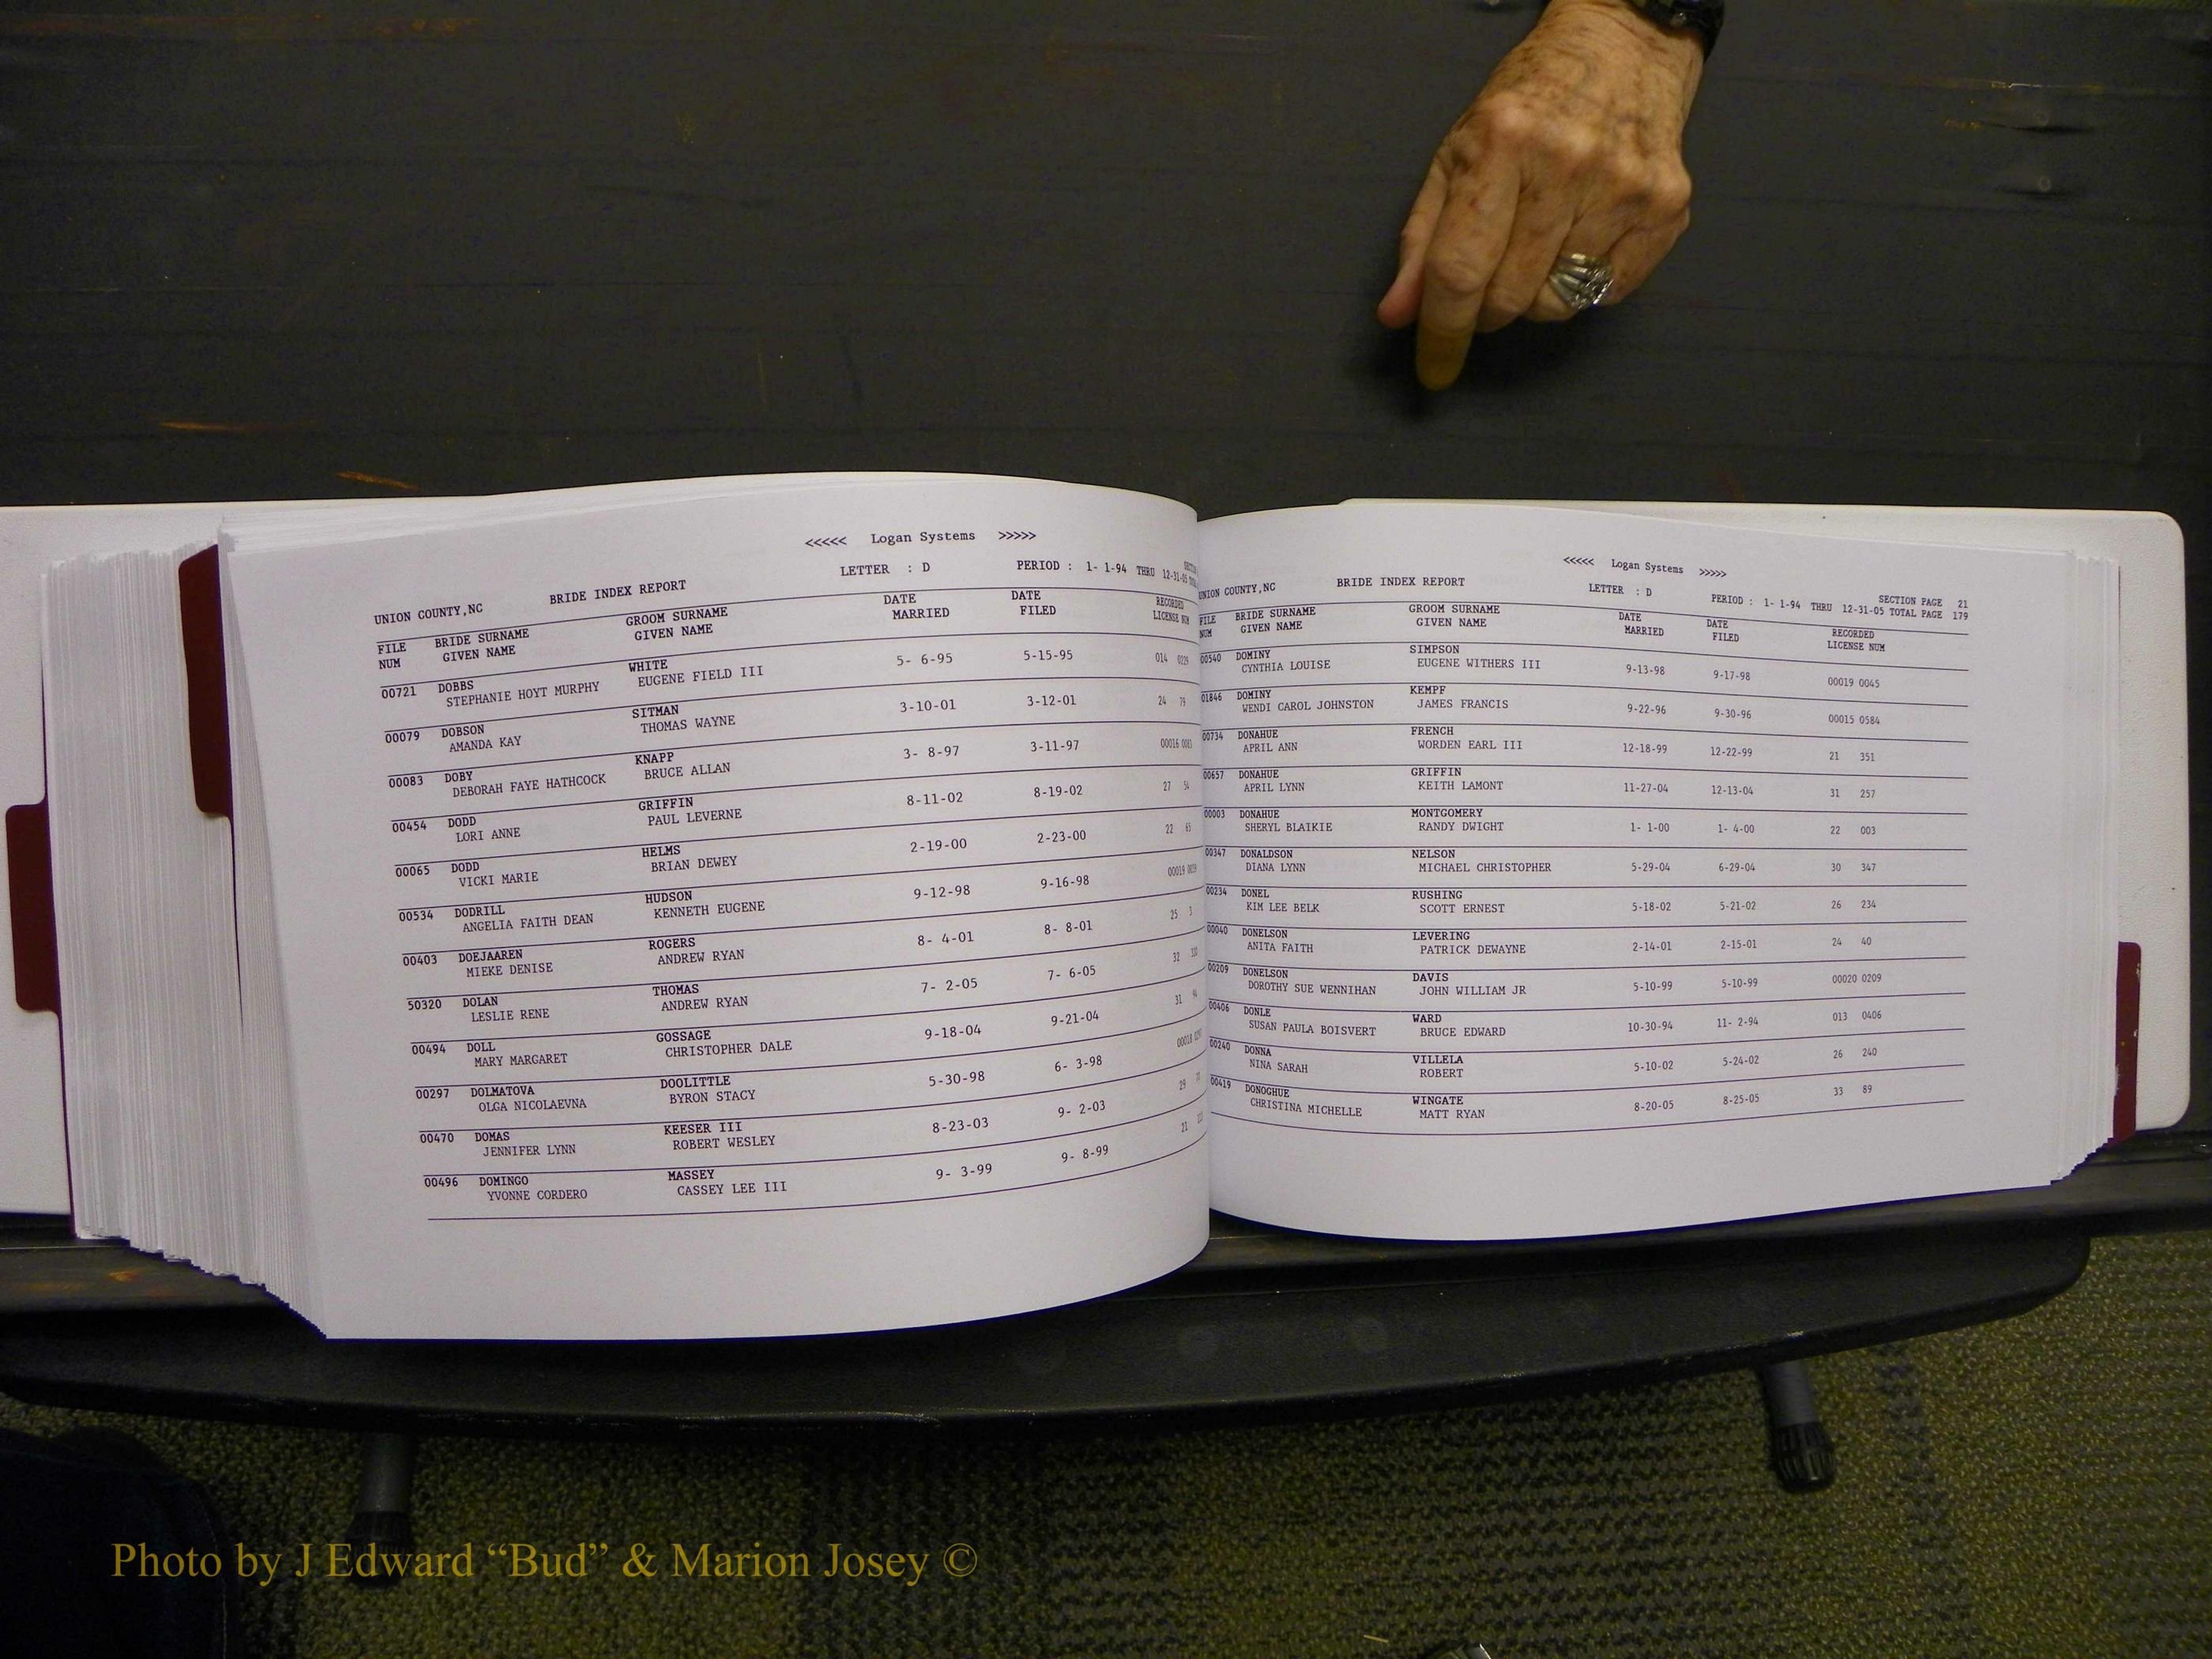 <<<<< Logan Systems >>>>>
UNION COUNTY,NC BRIDE INDEX REPORT LETTER : D PERIOD : 1- 1-94 THRU 12-31-05
FILE BRIDE SURNAME GROOM SURNAME DATE DATE RECORDED
NUM GIVEN NAME GIVEN NAME MARRIED FILED LICENSE NUM
00721 DOBBS WHITE 5- 6-95 5-15-95 014
STEPHANIE HOYT MURPHY EUGENE FIELD III
00079 DOBSON SITMAN 3-10-01 3-12-01 24 79
AMANDA KAY THOMAS WAYNE
00083 DOBY KNAPP 3- 8-97 3-11-97 00016 0083
DEBORAH FAYE HATHCOCK BRUCE ALLAN
00454 DODD GRIFFIN 8-11-02 8-19-02 27
LORI ANNE PAUL LEVERNE
00065 DODD HELMS 2-19-00 2-23-00 22 65
VICKI MARIE BRIAN DEWEY
00534 DODRILL HUDSON 9-12-98 9-16-98 00019
ANGELIA FAITH DEAN KENNETH EUGENE
00403 DOEJAAREN ROGERS 8- 4-01 8- 8-01 25
MIEKE DENISE ANDREW RYAN
50320 DOLAN THOMAS 7- 2-05 7- 6-05 32
LESLIE RENE ANDREW RYAN
00494 DOLL GOSSAGE 9-18-04 9-21-04 31
MARY MARGARET CHRISTOPHER DALE
00297 DOLMATOVA DOOLITTLE 5-30-98 6- 3-98 00018
OLGA NICOLAEVNA BYRON STACY
00470 DOMAS KEESER III 8-23-03 9- 2-03 29
JENNIFER LYNN ROBERT WESLEY
00496 DOMINGO MASSEY 9- 3-99 9- 8-99 21
YVONNE CORDERO CASSEY LEE III
<<<<< Logan Systems >>>>>
UNION COUNTY,NC BRIDE INDEX REPORT LETTER : D SECTION PAGE 21
PERIOD : 1- 1-94 THRU 12-31-05 TOTAL PAGE 179
FILE BRIDE SURNAME GROOM SURNAME DATE DATE RECORDED
NUM GIVEN NAME GIVEN NAME MARRIED FILED LICENSE NUM
00540 DOMINY SIMPSON 9-13-98 9-17-98 00019 0045
CYNTHIA LOUISE EUGENE WITHERS III
01846 DOMINY KEMPF 9-22-96 9-30-96 00015 0584
WENDI CAROL JOHNSTON JAMES FRANCIS
00734 DONAHUE FRENCH 12-18-99 12-22-99 21 351
APRIL ANN WORDEN EARL III
00657 DONAHUE GRIFFIN 11-27-04 12-13-04 31 257
APRIL LYNN KEITH LAMONT
00003 DONAHUE MONTGOMERY 1- 1-00 1- 4-00 22 003
SHERYL BLAIKIE RANDY DWIGHT
00347 DONALDSON NELSON 5-29-04 6-29-04 30 347
DIANA LYNN MICHAEL CHRISTOPHER
00234 DONEL RUSHING 5-18-02 5-21-02 26 234
KIM LEE BELK SCOTT ERNEST
00040 DONELSON LEVERING 2-14-01 2-15-01 24 40
ANITA FAITH PATRICK DEWAYNE
00209 DONELSON DAVIS 5-10-99 5-10-99 00020 0209
DOROTHY SUE WENNIHAN JOHN WILLIAM JR
00406 DONLE WARD 10-30-94 11- 2-94 013 0406
SUSAN PAULA BOISVERT BRUCE EDWARD
00240 DONNA VILLELA 5-10-02 5-24-02 26 240
NINA SARAH ROBERT
00419 DONOGHUE WINGATE 8-20-05 8-25-05 33 89
CHRISTINA MICHELLE MATT RYAN
Photo by J Edward “Bud” & Marion Josey ©